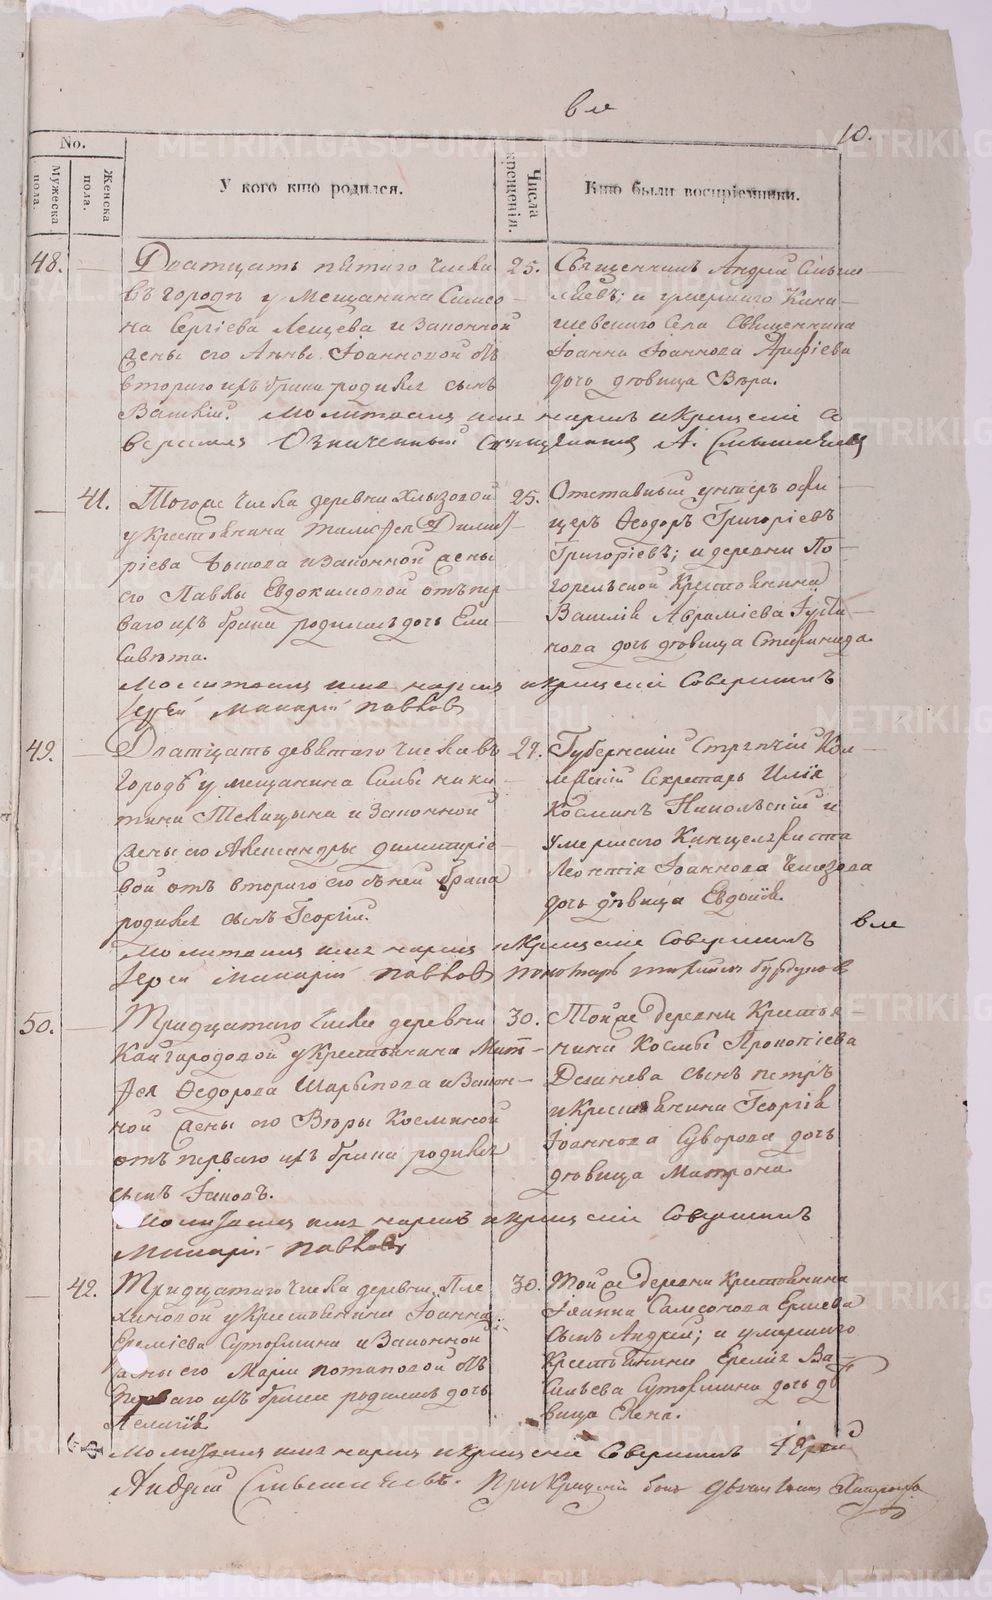 вле
10.
No.
Мужеска пола.
Женска пола.
У кого кто родился.
Числа крещенія.
Кто были воспріемники.
48. Дватцать пятаго числа
въ городѣ у мещанина Симео-
на Сергіева Лещева и законной
жены его Анны Іоанновой отъ
втораго ихъ брака родился сынъ
Василій.
25. Священникъ Андрей Смыш-
ляевъ; и умершаго Кина-
шевскаго села священника
Іоанна Іоаннова Арефіева
дочь дѣвица Вѣра.
Молитвами имя нарекъ и крещеніе со
вершилъ означенный священникъ А. Смышляевъ
41. Тогоже числа деревни
у крестьянина Тимофея Димит-
ріева и законной жены
его Павлы Евдокимовой отъ пер-
ваго ихъ брака родилась дочь Ели-
савета.
25. Отставный унтеръ офи-
церъ Ѳеодоръ Григоріевъ
Григоріевъ; и деревни По-
горельской крестьянина
Василія Авраміева
дочь дѣвица Стефанида.
Молитвами имя нарекъ и крещеніе совершилъ
Іерей Макарій Павловъ
49. Дватцать девятаго числа въ
городѣ у мещанина Силы Ники-
тина и законной
жены его Александры Димитріе-
вой отъ втораго его съ ней брака
родился сынъ Георгій.
29. Губернскій Стряпчій Кол-
лежскій Секретарь Илія
Косминъ Никольскій и
умершаго Канцеляриста
Леонтія Іоаннова
дочь дѣвица Евдокія.
вле
Молитвами имя нарекъ и крещеніе совершилъ
Іерей Макарій Павловъ пономарь
50. Тридцатаго числа деревни
Кайгородовой у крестьянина Мат-
фея Ѳедорова Шарыпова и закон-
ной жены его Вѣры Косминой
отъ перваго ихъ брака родился
сынъ Іаковъ.
30. Тойже деревни крестья-
нина Космы Прокопіева
сынъ Петръ
и крестьянина Георгія
Іоаннова Суворова дочь
дѣвица Матрона
Молитвами имя нарекъ и крещеніе совершилъ
Макарій Павловъ
42. Тридцатаго числа деревни Пле-
хановой у крестьянина Іоанна
Еремѣева Сутормина и законной
жены его Маріи Потаповой отъ
перваго ихъ брака родилась дочь
30. Тойже деревни крестьянина
Сампсонова
сынъ Андрей; и умершаго
крестьянина Еремія Ва-
сильева Сутормина дочь дѣ-
вица Елена.
Молитвами имя нарекъ и крещеніе совершилъ Іерей
Андрей Смышляевъ. При крещеніи былъ
METRIKI.GASO-URAL.RU